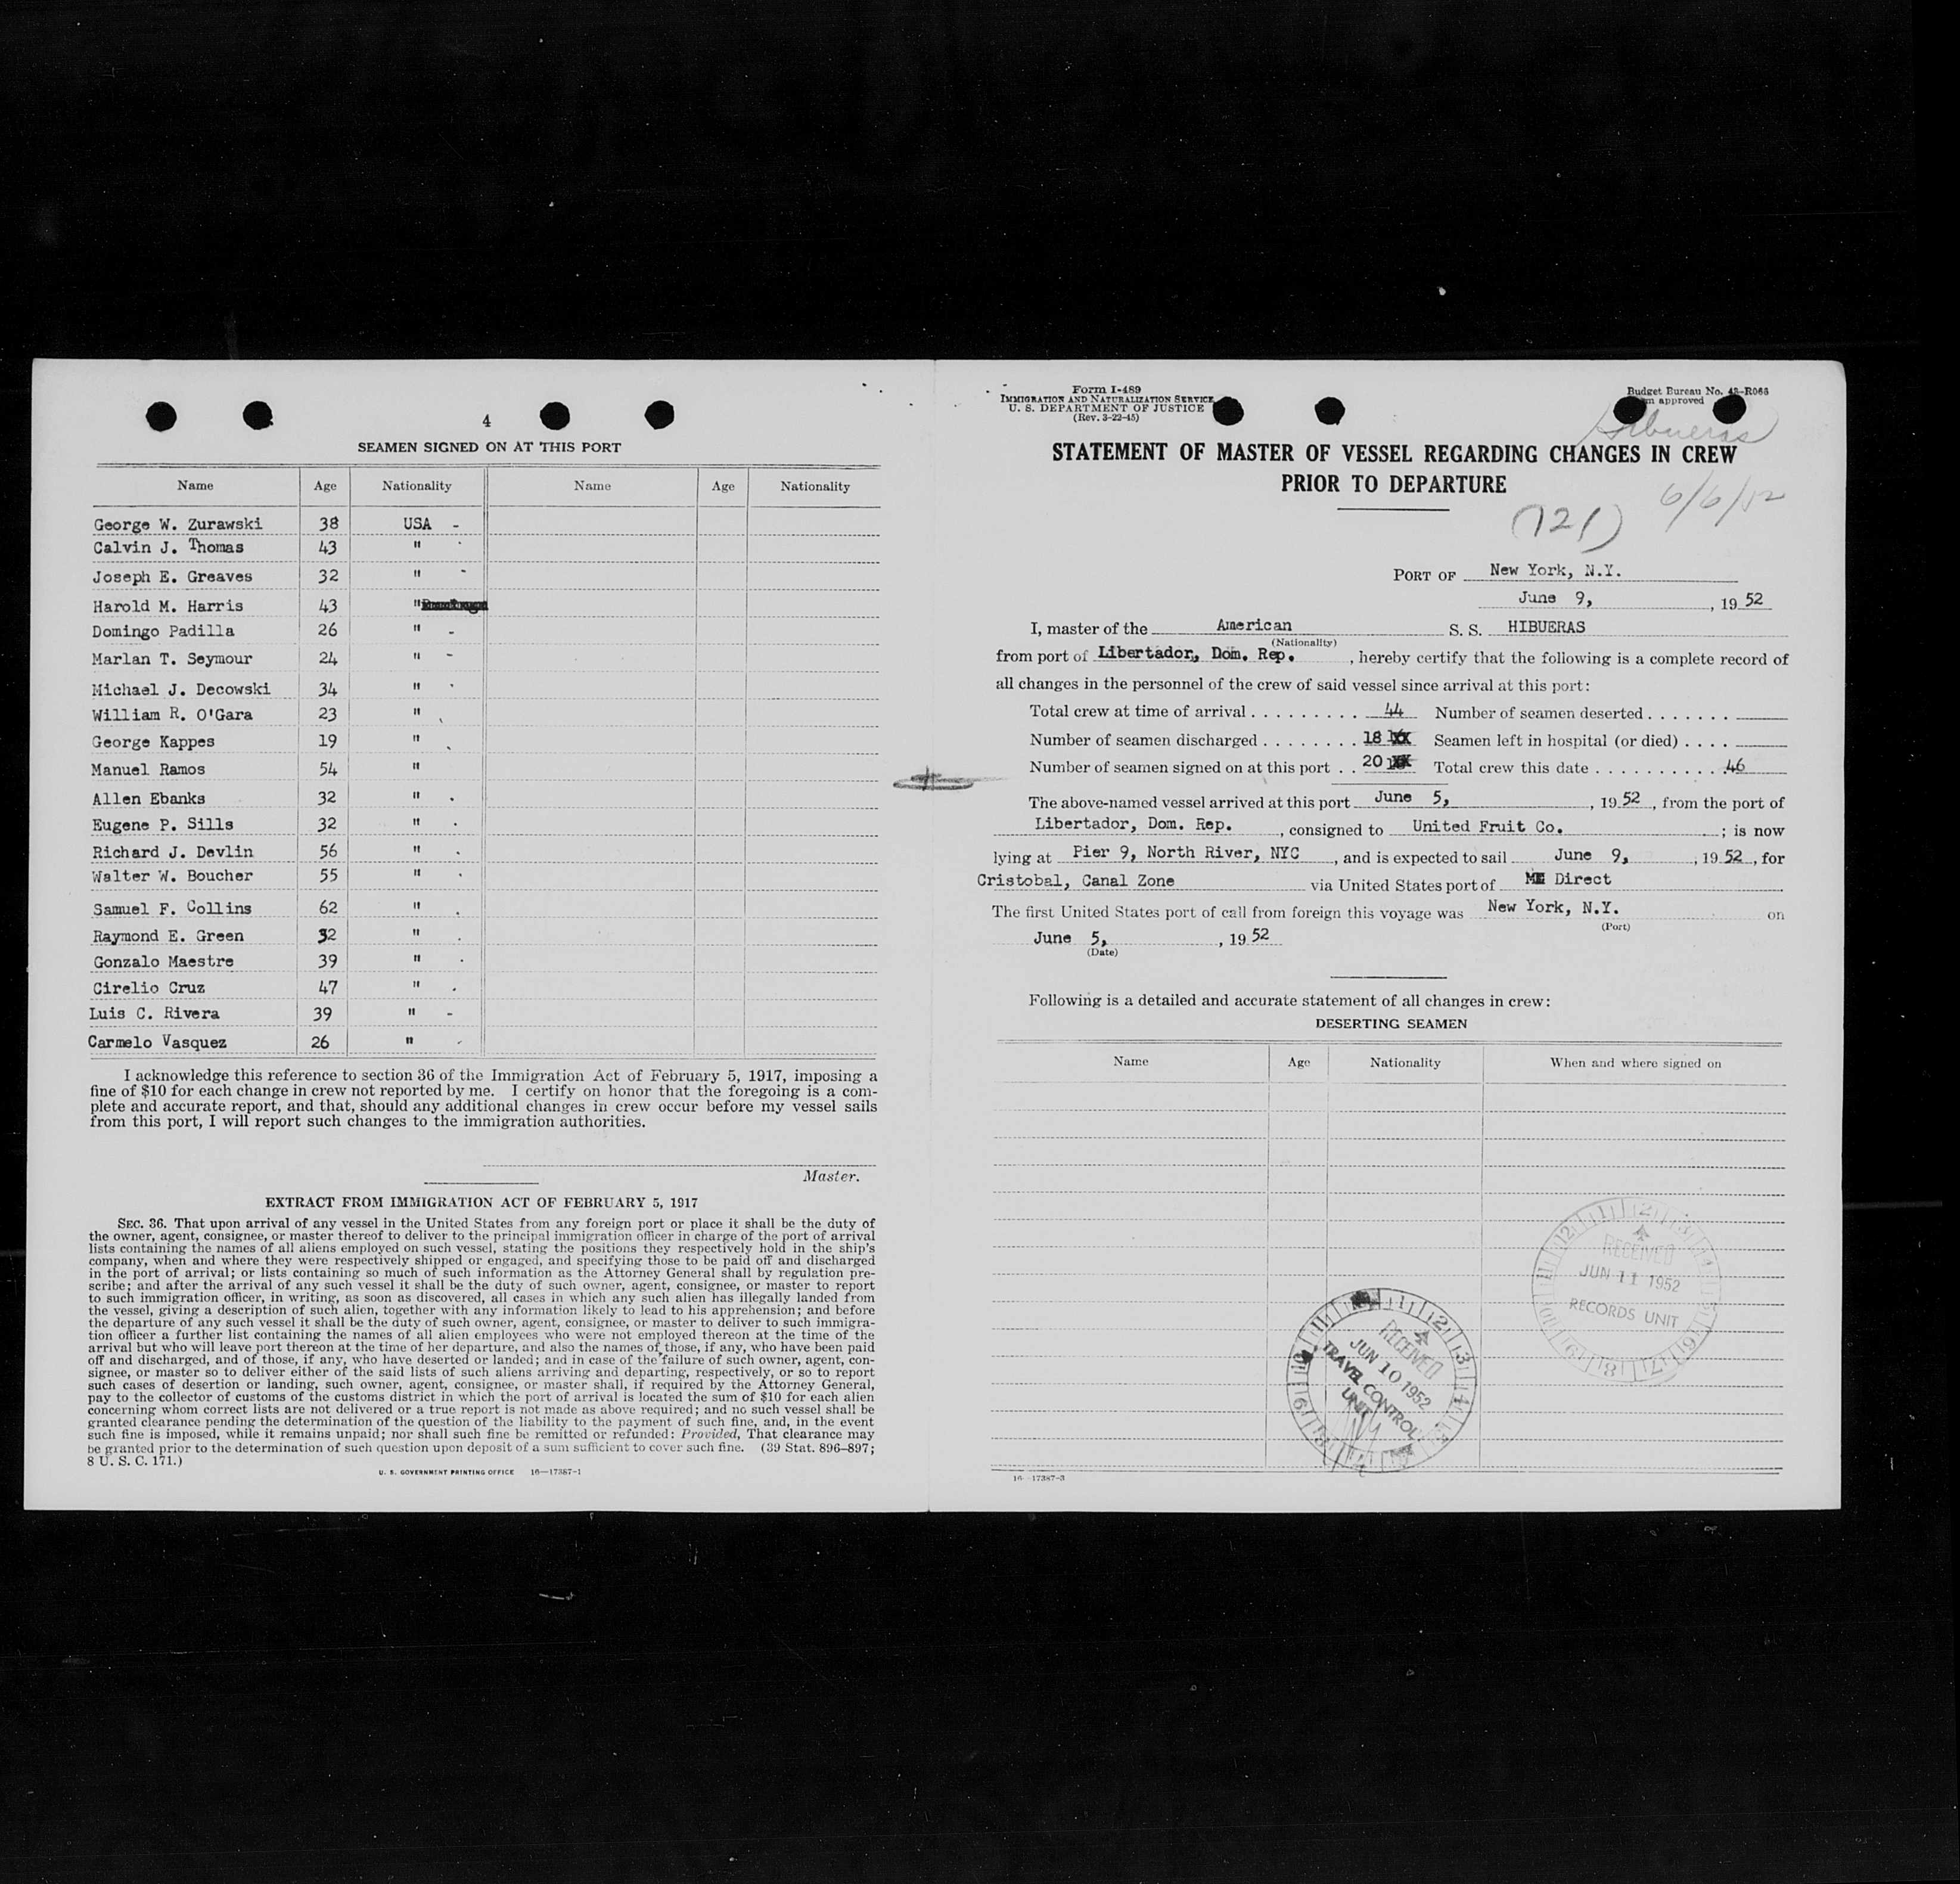 4
SEAMEN SIGNED ON AT THIS PORT
Name Age Nationality Name Age Nationality
George W. Zurawski 38 USA -
Calvin J. Thomas 43 "
Joseph E. Greaves 32 " -
Harold M. Harris 43 "
Domingo Padilla 26 " -
Marlan T. Seymour 24 " -
Michael J. Decowski 34 "
William R. O'Gara 23 "
George Kappes 19 "
Manuel Ramos 54 "
Allen Ebanks 32 "
Eugene P. Sills 32 "
Richard J. Devlin 56 "
Walter W. Boucher 55 "
Samuel F. Collins 62 "
Raymond E. Green 32 "
Gonzalo Maestre 39 "
Cirelio Cruz 47 "
Luis C. Rivera 39 " -
Carmelo Vasquez 26 "
I acknowledge this reference to section 36 of the Immigration Act of February 5, 1917, imposing a
fine of $10 for each change in crew not reported by me. I certify on honor that the foregoing is a com-
plete and accurate report, and that, should any additional changes in crew occur before my vessel sails
from this port, I will report such changes to the immigration authorities.
Master.
EXTRACT FROM IMMIGRATION ACT OF FEBRUARY 5, 1917
SEC. 36. That upon arrival of any vessel in the United States from any foreign port or place it shall be the duty of
the owner, agent, consignee, or master thereof to deliver to the principal immigration officer in charge of the port of arrival
lists containing the names of all aliens employed on such vessel, stating the positions they respectively hold in the ship's
company, when and where they were respectively shipped or engaged, and specifying those to be paid off and discharged
in the port of arrival; or lists containing so much of such information as the Attorney General shall by regulation pre-
scribe; and after the arrival of any such vessel it shall be the duty of such owner, agent, consignee, or master to report
to such immigration officer, in writing, as soon as discovered, all cases in which any such alien has illegally landed from
the vessel, giving a description of such alien, together with any information likely to lead to his apprehension; and before
the departure of any such vessel it shall be the duty of such owner, agent, consignee, or master to deliver to such immigra-
tion officer a further list containing the names of all alien employees who were not employed thereon at the time of the
arrival but who will leave port thereon at the time of her departure, and also the names of those, if any, who have been paid
off and discharged, and of those, if any, who have deserted or landed; and in case of the failure of such owner, agent, con-
signee, or master so to deliver either of the said lists of such aliens arriving and departing, respectively, or so to report
such cases of desertion or landing, such owner, agent, consignee, or master shall, if required by the Attorney General,
pay to the collector of customs of the customs district in which the port of arrival is located the sum of $10 for each alien
concerning whom correct lists are not delivered or a true report is not made as above required; and no such vessel shall be
granted clearance pending the determination of the question of the liability to the payment of such fine, and, in the event
such fine is imposed, while it remains unpaid; nor shall such fine be remitted or refunded: Provided, That clearance may
be granted prior to the determination of such question upon deposit of a sum sufficient to cover such fine. (39 Stat. 896-897;
8 U. S. C. 171.)
U. S. GOVERNMENT PRINTING OFFICE 16—17387-1
Form I-489
IMMIGRATION AND NATURALIZATION SERVICE
U. S. DEPARTMENT OF JUSTICE
(Rev. 3-22-45)
Budget Bureau No. 43-R066
approved
Hibueras
STATEMENT OF MASTER OF VESSEL REGARDING CHANGES IN CREW
PRIOR TO DEPARTURE
6/6/52
(121)
PORT OF New York, N.Y.
June 9, , 19 52
I, master of the American S. S. HIBUERAS
(Nationality)
from port of Libertador, Dom. Rep. , hereby certify that the following is a complete record of
all changes in the personnel of the crew of said vessel since arrival at this port:
Total crew at time of arrival . . . . . . . . . 44 Number of seamen deserted . . . . . . .
Number of seamen discharged . . . . . . . . 18 Seamen left in hospital (or died) . . . .
Number of seamen signed on at this port . . 20 Total crew this date . . . . . . . . . . . 46
The above-named vessel arrived at this port June 5, , 19 52 , from the port of
Libertador, Dom. Rep. , consigned to United Fruit Co. ; is now
lying at Pier 9, North River, NYC , and is expected to sail June 9, , 19 52 , for
Cristobal, Canal Zone via United States port of Direct
The first United States port of call from foreign this voyage was New York, N.Y. on
(Port)
June 5, , 19 52
(Date)
Following is a detailed and accurate statement of all changes in crew:
DESERTING SEAMEN
Name Age Nationality When and where signed on
RECEIVED
JUN 11 1952
RECORDS UNIT
RECEIVED
JUN 10 1952
TRAVEL CONTROL
UNIT
16—17387-3